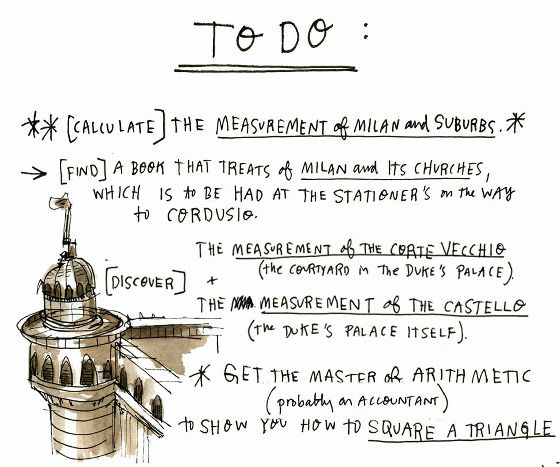 TO DO :
** [CALCULATE] THE MEASUREMENT of MILAN and SUBURBS. *
→ [FIND] A BOOK THAT TREATS of MILAN and ITS CHURCHES,
WHICH IS to BE HAD AT THE STATIONER'S on the WAY
to CORDUSIO.
THE MEASUREMENT of THE CORTE VECCHIO
(the COURTYARD in THE DUKE'S PALACE).
[DISCOVER] +
THE MEASUREMENT of THE CASTELLO
(the DUKE'S PALACE ITSELF).
* GET THE MASTER of ARITHMETIC
(probably an ACCOUNTANT)
to SHOW YOU HOW TO SQUARE A TRIANGLE